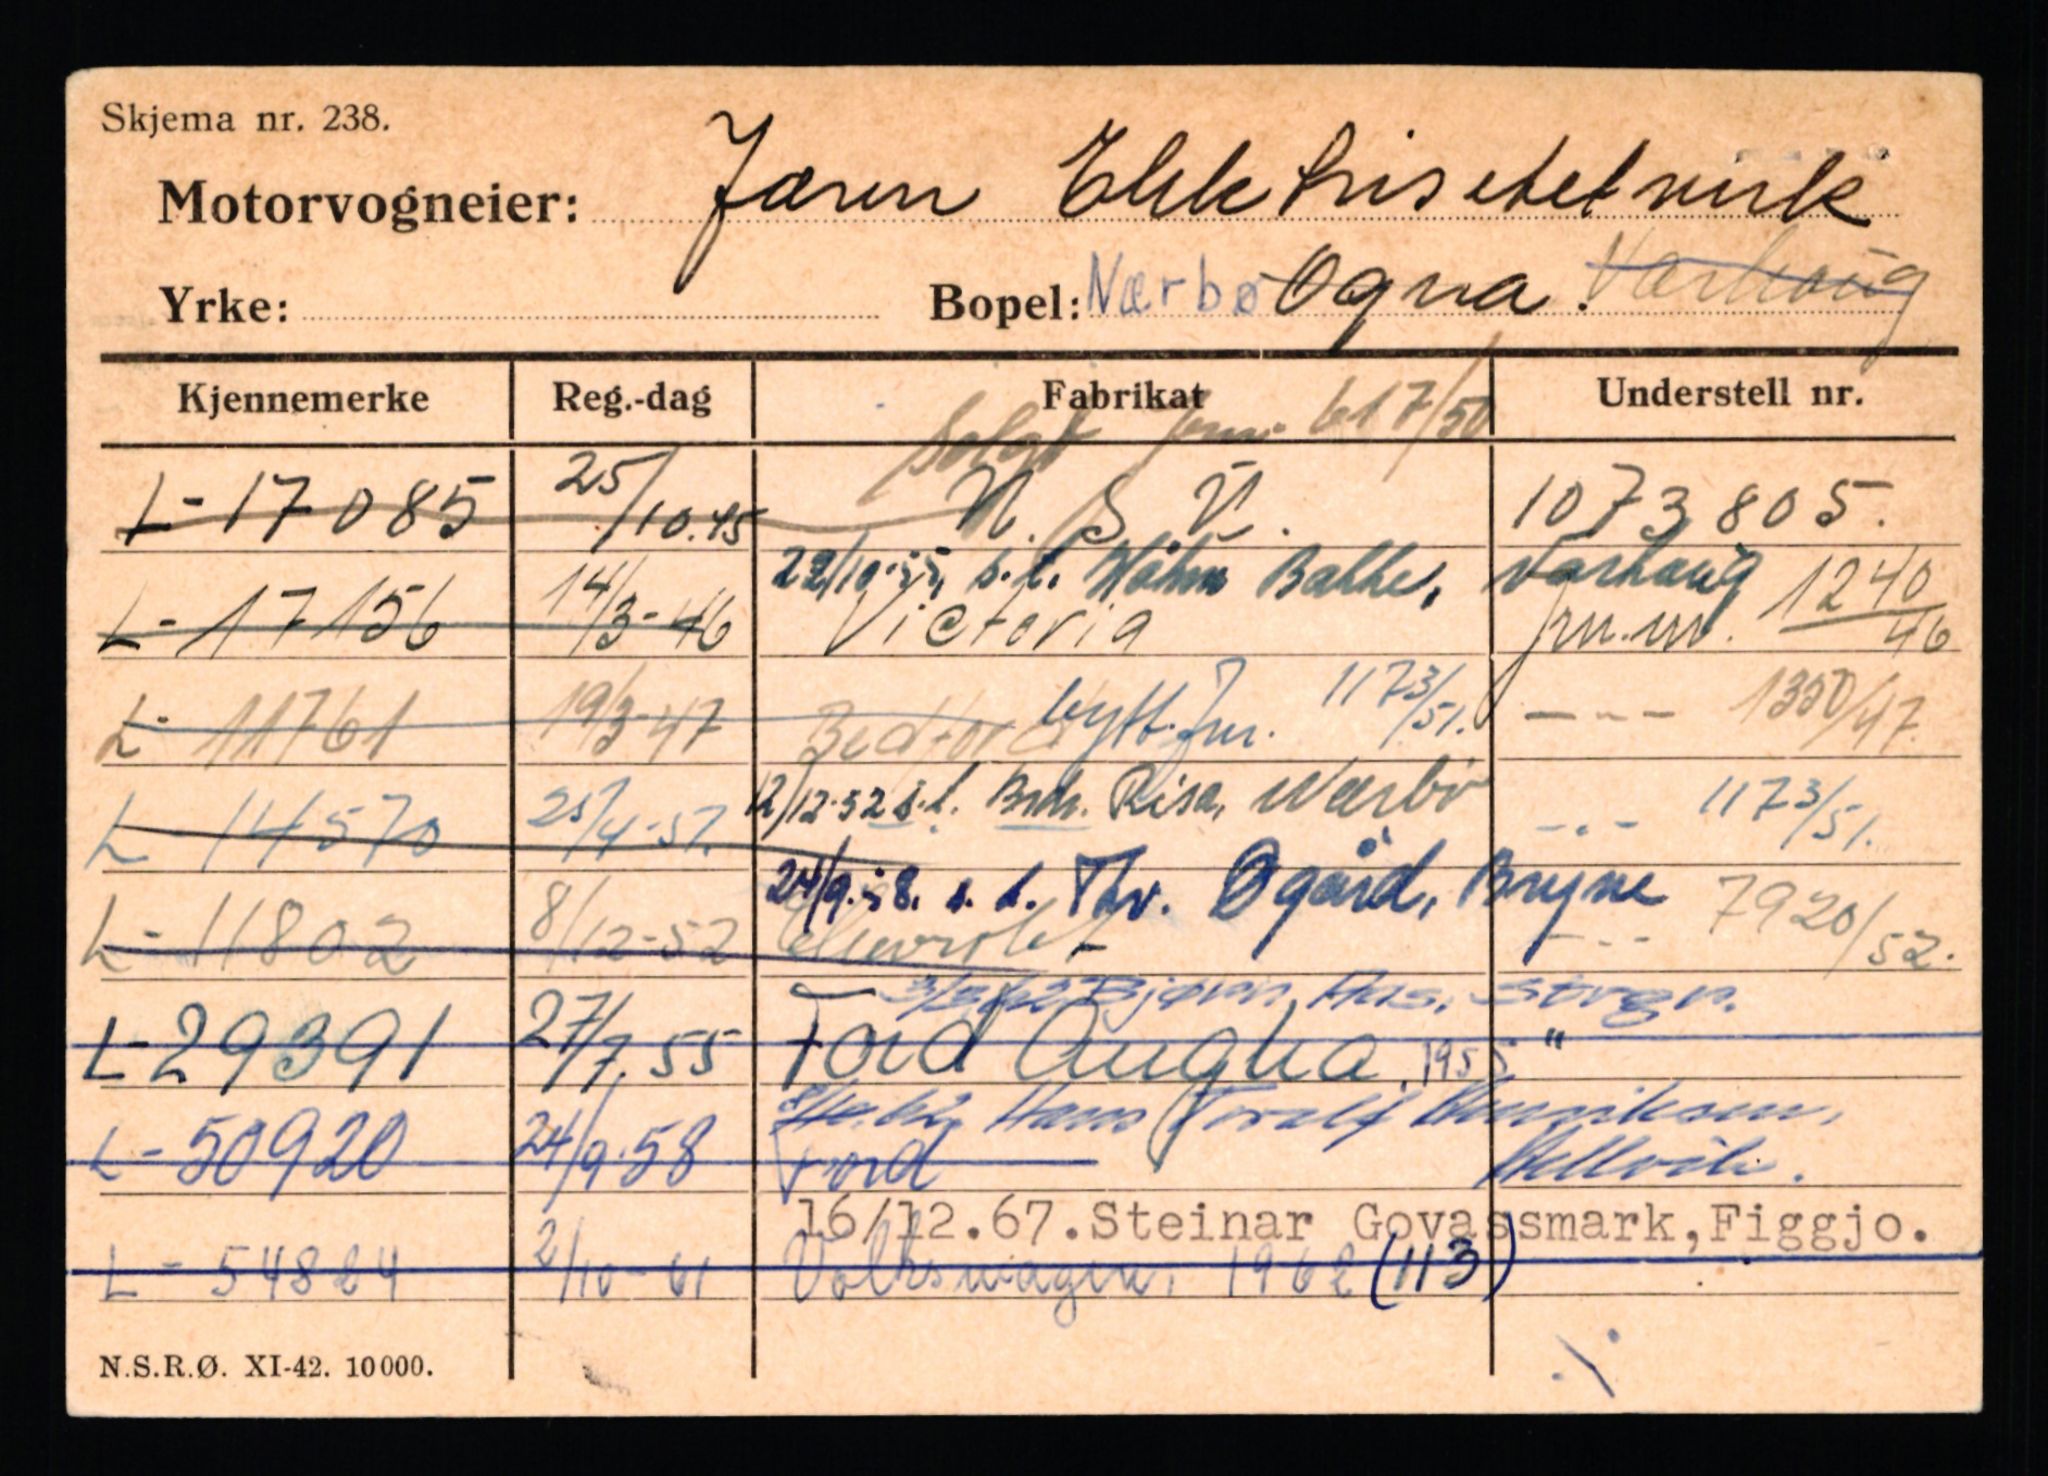 Skjema nr. 238.
Motorvogneier: Jæren Elektrisitetsverk
Yrke: Bopel: Nærbø Ogna. Varhaug
Kjennemerke Reg.-dag Fabrikat Understell nr.
Solgt jnr. 617/50
L-17085 25/10.45 N. S. U. 1073805.
22/10-55, s.t. Håkon Bakke, Varhaug
L-17156 14/3-46 Victoria jrn.nr. 1240/46
L-11761 19/3-47 Bedford bytt. Jnr. 1173/51. --- 1350/47.
12/12-52 s.t. Brdr. Risa, Nærbø
L-14570 25/4-51. -.- 1173/51.
24/9-58. s. t. Thv. Øgård, Bryne
L-11802 8/12-52 Chevrolet --- 7920/52.
Bjørn Aas, Stvgr.
L-29391 27/7.55 Ford Anglia, 1955 "
Hans Toralf Henriksen,
L-50920 24/9.58 Ford Hellvik.
16/12.67. Steinar Govassmark, Figgjo.
L-54824 2/10-61 Volkswagen, 1962 (113)
N.S.R.Ø. XI-42. 10000.